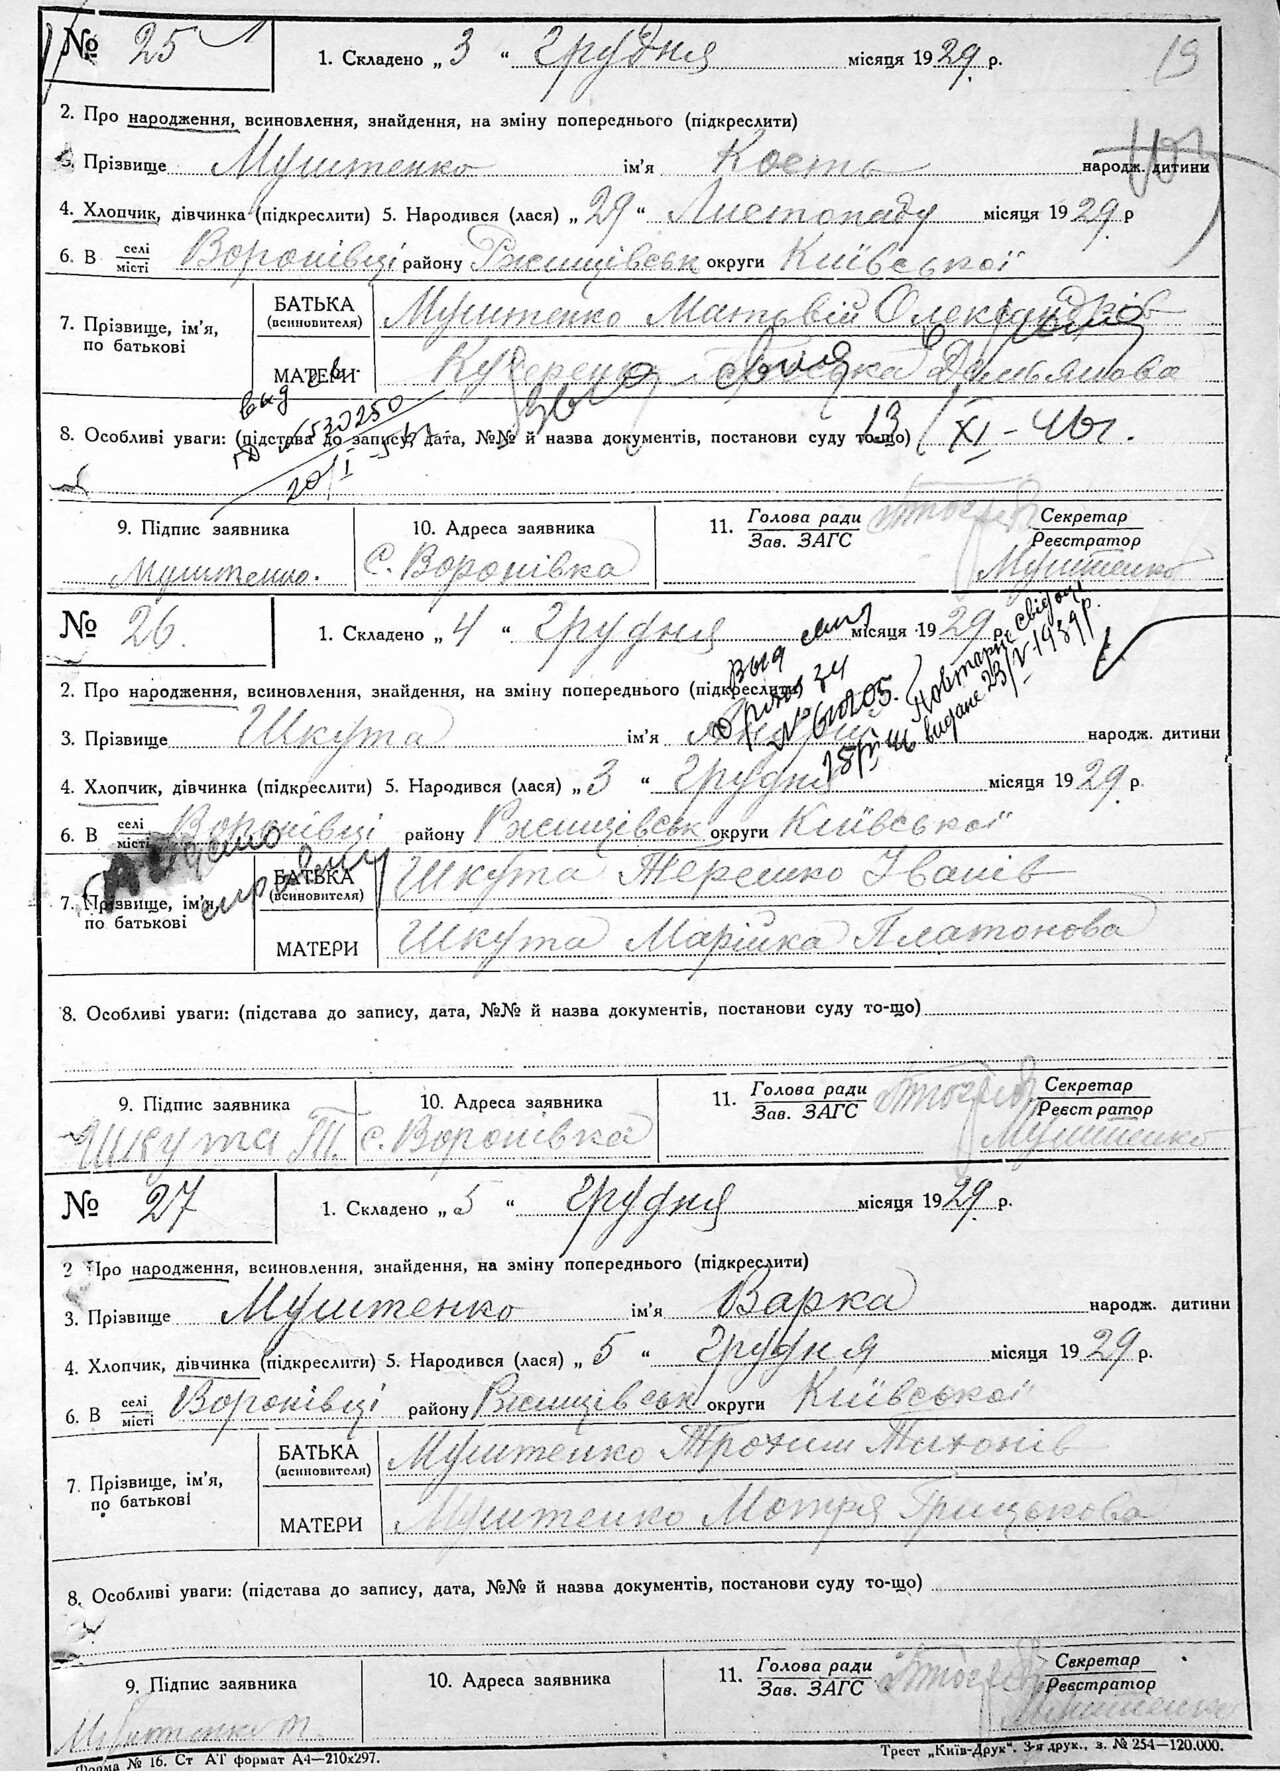 № 25 1. Складено „ 3 “ Грудня місяця 1929 р. 19
2. Про народження, всиновлення, знайдення, на зміну попереднього (підкреслити)
3. Прізвище Муштенко ім'я Кость народж. дитини
4. Хлопчик, дівчинка (підкреслити) 5. Народився (лася) „ 29 “ Листопаду місяця 1929 р
6. В селі місті Воронівці району Ржищівськ округи Київської
7. Прізвище, ім'я, по батькові БАТЬКА (всиновителя) Муштенко Матвій Олександрів
МАТЕРИ Кучеренко Демьянова
выд св.
№ 530250
20/I
8. Особливі уваги: (підстава до запису, дата, №№ й назва документів, постанови суду то-що) 13/XI-46г.
9. Підпис заявника 10. Адреса заявника 11. Голова ради Зав. ЗАГС Секретар Реєстратор
Муштенко. с. Воронівка Муштенко
№ 26. 1. Складено „ 4 “ Грудня місяця 1929 р.
2. Про народження, всиновлення, знайдення, на зміну попереднього (підкреслити)
Повторне свідоц.
видане 23/V-1939р.
3. Прізвище Шкута ім'я народж. дитини
4. Хлопчик, дівчинка (підкреслити) 5. Народився (лася) „ 3 “ Грудня місяця 1929 р.
6. В селі місті Воронівці району Ржищівськ округи Київської
7. Прізвище, ім'я, по батькові БАТЬКА (всиновителя) Шкута Терешко Іванів
МАТЕРИ Шкута Марійка Платонова
8. Особливі уваги: (підстава до запису, дата, №№ й назва документів, постанови суду то-що)
9. Підпис заявника 10. Адреса заявника 11. Голова ради Зав. ЗАГС Секретар Реєстратор
Шкута Т. с. Воронівка Муштенко
№ 27 1. Складено „ 5 “ Грудня місяця 1929 р.
2 Про народження, всиновлення, знайдення, на зміну попереднього (підкреслити)
3. Прізвище Муштенко ім'я Варка народж. дитини
4. Хлопчик, дівчинка (підкреслити) 5. Народився (лася) „ 5 “ Грудня місяця 1929 р.
6. В селі місті Воронівці району Ржищівськ округи Київської
7. Прізвище, ім'я, по батькові БАТЬКА (всиновителя) Муштенко Трохим Тихонів
МАТЕРИ Муштенко Мотря Грицькова
8. Особливі уваги: (підстава до запису, дата, №№ й назва документів, постанови суду то-що)
9. Підпис заявника 10. Адреса заявника 11. Голова ради Зав. ЗАГС Секретар Реєстратор
Муштенко Т. Муштенко
Форма № 16. Ст АТ формат А4—210x297. Трест „Київ-Друк“. 3-я друк., з. № 254—120.000.